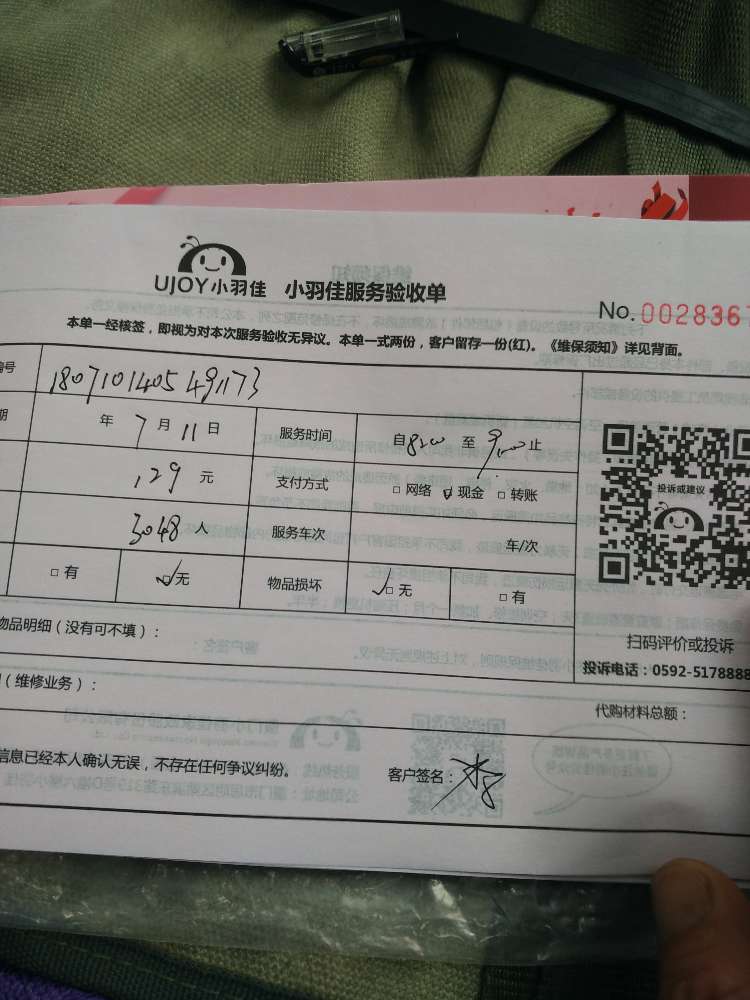 UJOY小羽佳 小羽佳服务验收单
No. 0028367
本单一经核签，即视为对本次服务验收无异议。本单一式两份，客户留存一份(红)。《维保须知》详见背面。
编号 180710140549173
期 年 7 月 11 日 服务时间 自 8:00 至 9:00 止
129 元 支付方式 □ 网络 ☑ 现金 □ 转账
3048 人 服务车次 车/次
□ 有 ☑ 无 物品损坏 ☑ 无 □ 有
投诉或建议
物品明细（没有可不填）：
扫码评价或投诉
投诉电话：0592-5178888
（维修业务）：
代购材料总额：
信息已经本人确认无误，不存在任何争议纠纷。 客户签名：